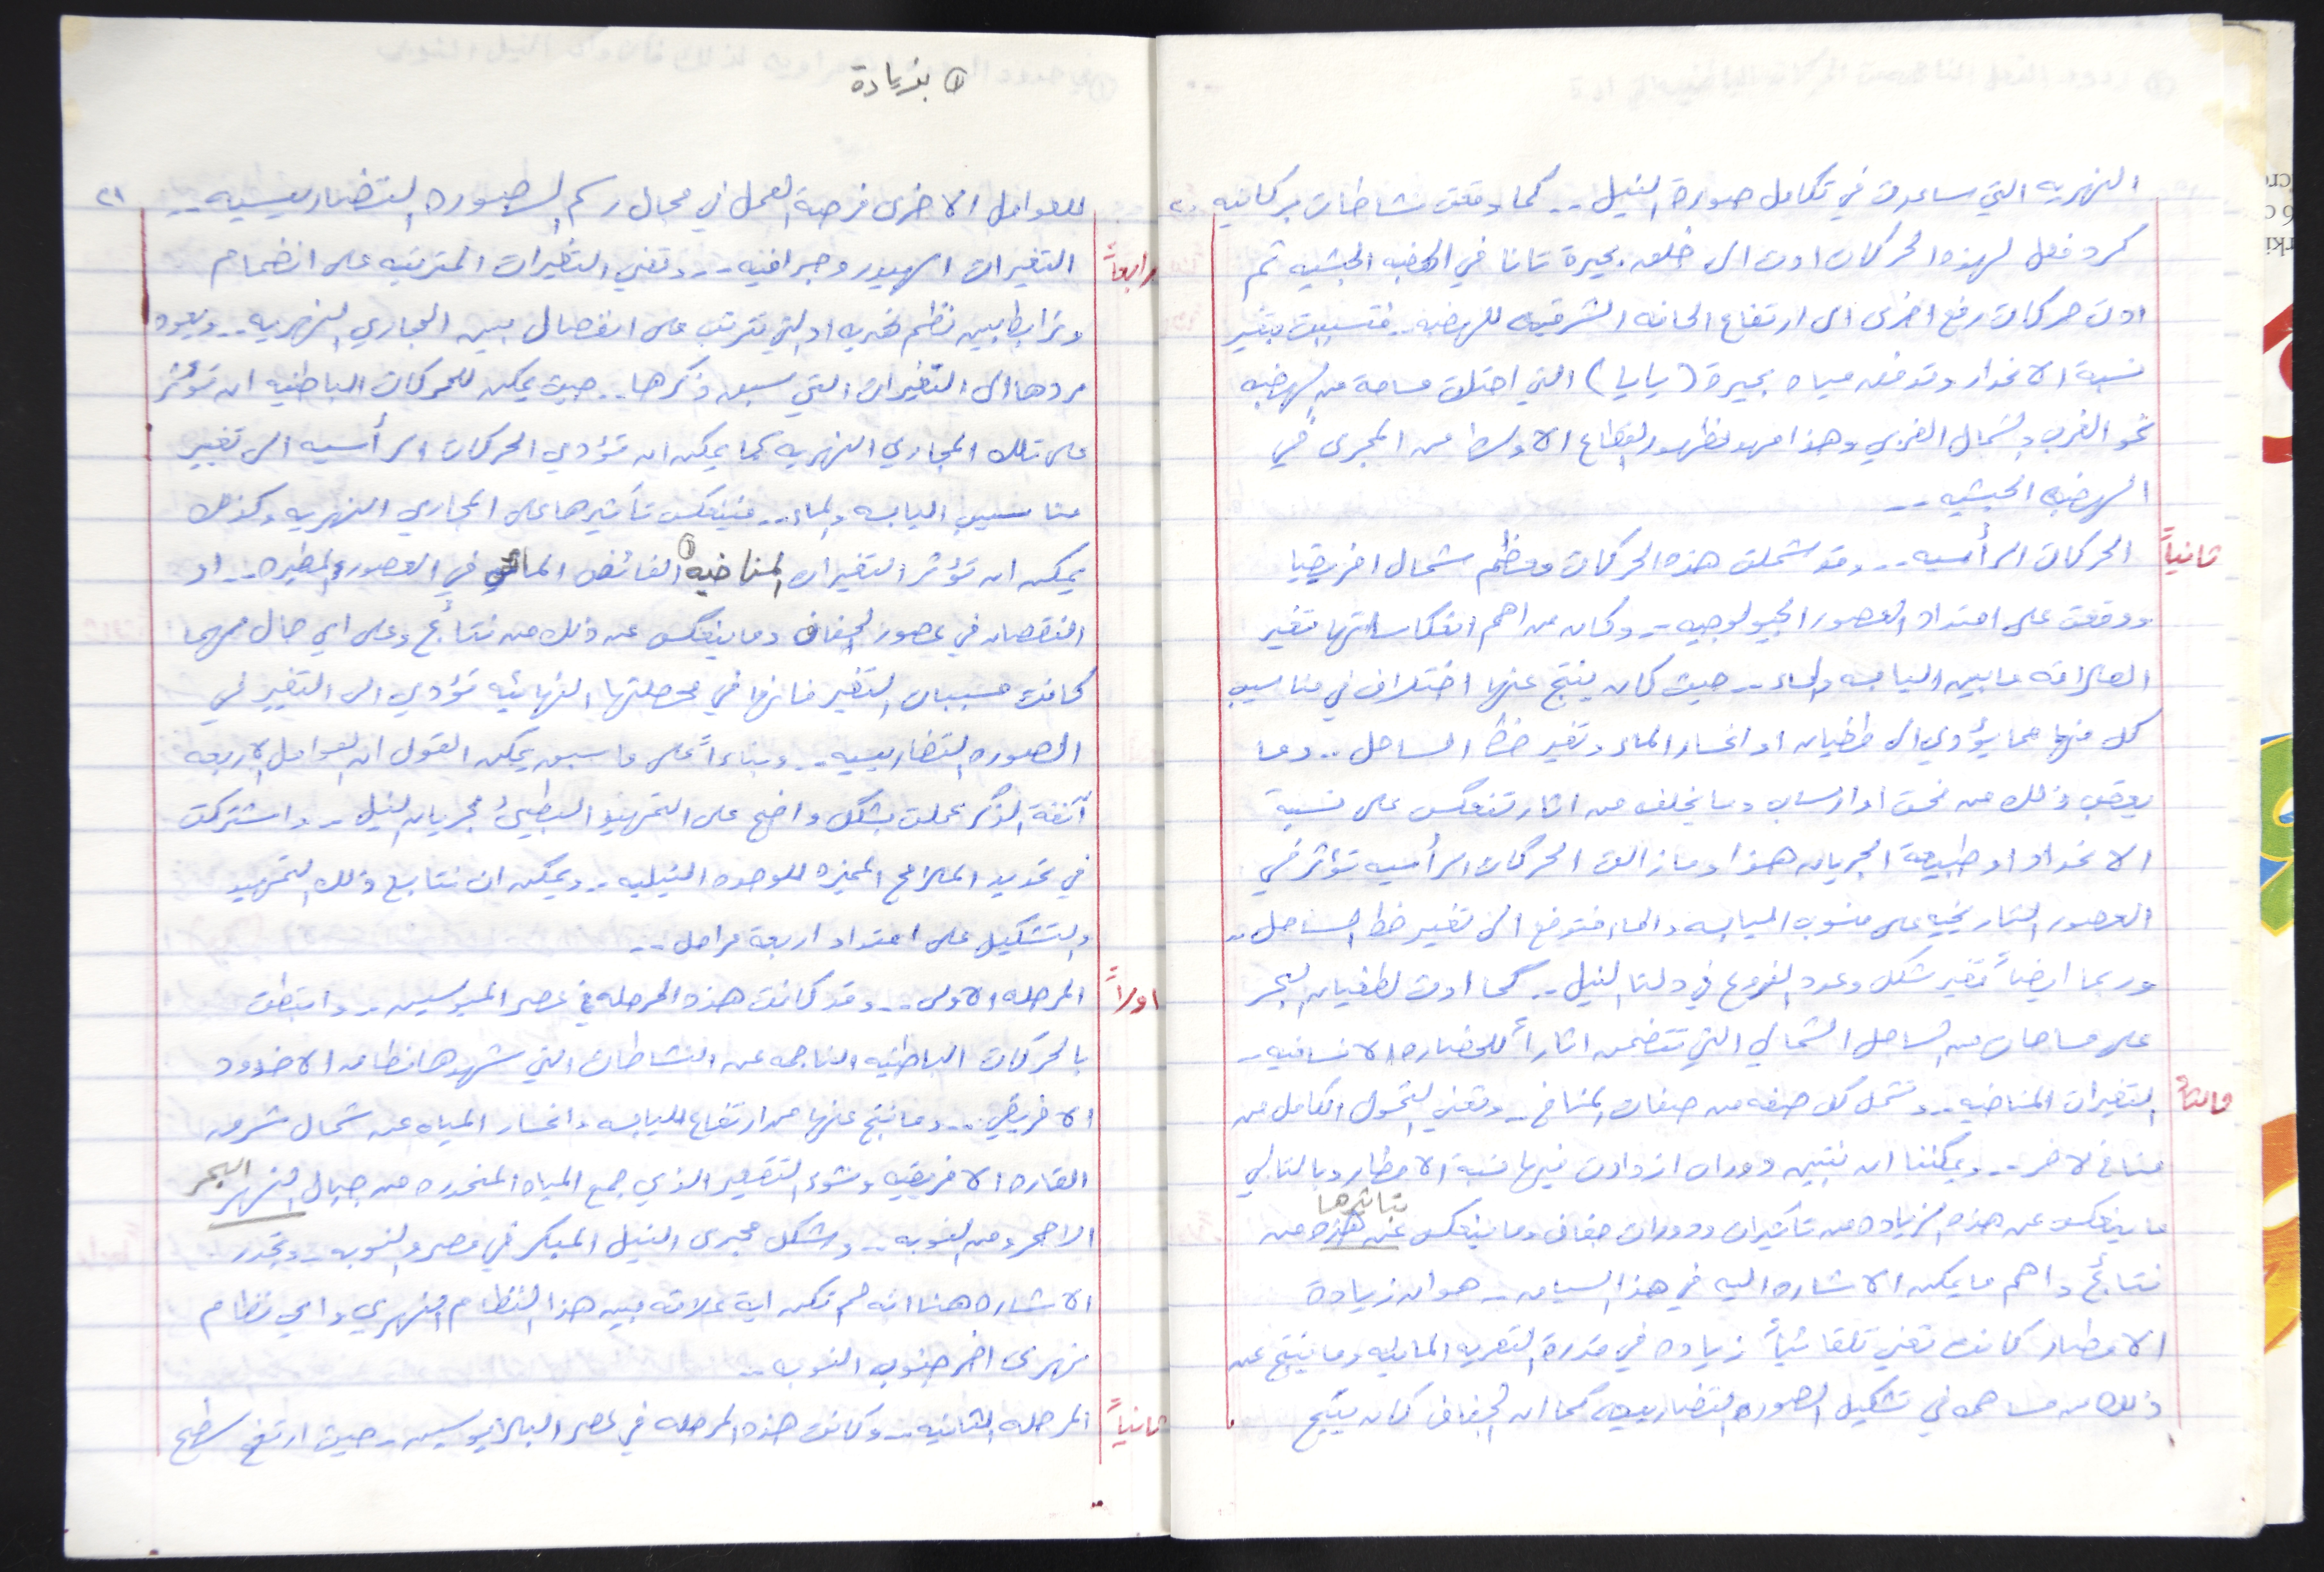 النهريه التي ساعدت في تكامل صورة النيل .. كما وقعت نشاطات بركانيه ٢٠
كرد فعل لهذه الحركات ادت الى خلق بحيرة تانا في الهضبه الحبشيه ثم
ادت حركات رفع اخرى الى ارتفاع الحافه الشرقيه للهضبه .. فتسببت بتغير
نسبة الانحدار وتدفق مياه بحيرة (يايا) التي احتلت مساحة من الهضبه
نحو الغرب والشمال الغربي وهذا مهد لظهور القطاع الاوسط من المجرى في
الهضبه الحبشيه ..
ثانياً الحركات الرأسيه .. وقد شملت هذه الحركات معظم شمال افريقيا
ووقعت على امتداد العصور الجيولوجيه .. وكان من اهم انعكاساتها تغير
العلاقه ما بين اليابسه والماء .. حيث كان ينتج عنها اختلاف في مناسيب
كل منها مما يؤدي الى طغيان او انحسار الماء وتغير خط الساحل .. وما
يعقب ذلك من نحت او ارساب وما يخلف من اثار تنعكس على نسبة
الانحدار او طبيعة الجريان هذا وما زالت الحركات الرأسيه تؤثر في
العصور التاريخيه على منسوب اليابسه والماء فتدفع الى تغير خط الساحل ..
وربما ايضاً تغير شكل وعدد الفروع في دلتا النيل .. كما ادت لطغيان البحر
على مساحات من الساحل الشمالي التي تتضمن اثاراً للحضاره الانسانيه ..
ثالثاً التغيرات المناخيه .. وتشمل كل صفه من صفات المناخ .. وتعني التحول الكامل من
مناخ لاخر .. ويمكننا ان نتبين دورات ازدادت فيها نسبة الامطار وبالتالي
بتأثيرها
ما ينعكس عن هذه الزياده من تأثيرات ودورات جفاف وما ينعكس عن هذه من
نتائج واهم ما يمكن الاشاره اليه في هذا السياق .. هو ان زيادة
الامطار كانت تعني تلقائياً زياده في قدرة التعريه المائيه وما ينتج عن
ذلك من مساهمه في تشكيل الصوره التضاريسيه كما ان الجفاف كان يتيح
① بزيادة
للعوامل الاخرى فرصة العمل في مجال رسم الصوره التضاريسيه .. ٢١
رابعاً التغيرات الهيدروجرافيه .. وتعني التغيرات المترتبه على انضمام
وترابط بين نظم نهريه او التي تترتب على انفصال بين المجاري النهريه .. ويعود
مردها الى التغيرات التي سبق ذكرها .. حيث يمكن للحركات الباطنيه ان تؤثر
على تلك المجاري النهريه كما يمكن ان تؤدي الحركات الرأسيه الى تغيير
مناسيب اليابسه والماء .. فينعكس تأثيرها على المجاري النهريه وكذلك
يمكن ان تؤثر التغيرات المناخيه ① الفائض المائي في العصور المطيره .. او
النقصان في عصور الجفاف وما ينعكس عن ذلك من نتائج وعلى اي حال مهما
كانت مسببات التغير فانها في محصلتها النهائيه تؤدي الى التغيير في
الصوره التضاريسيه .. وبناءاً على ما سبق يمكن القول ان العوامل الاربعه
آنفة الذكر عملت بشكل واضح على التمهيد البطيئ لجريان النيل .. واشتركت
في تحديد الملامح المميزه للوجود النيليه .. ويمكن ان نتابع ذلك التمهيد
والتشكيل على امتداد اربعة مراحل ..
اولاً المرحله الاولى .. وقد كانت هذه المرحله في عصر الميوسين .. وارتبطت
بالحركات الباطنيه الناجمه عن النشاطات التي شهدها نطاق الاخدود
الافريقي .. وما نتج عنها من ارتفاع لليابسه وانحسار المياه عن شمال شرق
القاره الافريقيه ونشوء التقعير الذي جمع المياه المنحدره من جبال النهر البحر
الاحمر ومن النوبه .. وشكل مجرى النيل المبكر في مصر والنوبه .. وتجدر
الاشاره هنا انه لم تكن اية علاقه بين هذا النظام النهري واي نظام
نهرى اخر جنوب النوبه ..
ثانياً المرحله الثانيه .. وكانت هذه المرحله في عصر البلايوسين .. حيث ارتفع سطح